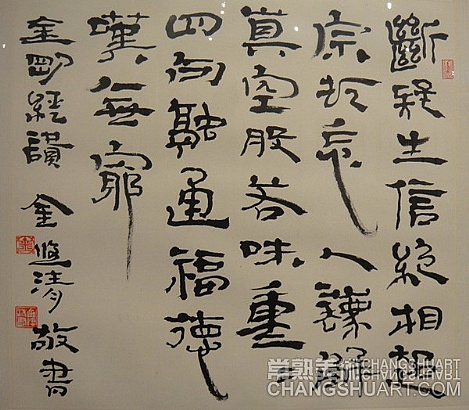 斷疑生信絕相超
宗頓忘人灋解
真空般若味重〻
四句融通福德
嘆無窮
金剛經讚 金清敬書
常熟美术CHANGSHUART
CHANGSHUART.COM